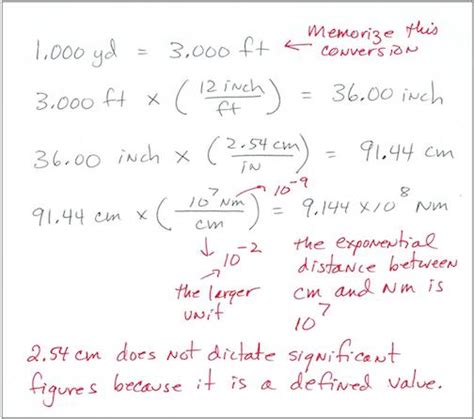 1.000 yd = 3.000 ft ← Memorize this conversion
3.000 ft × (12 inch / ft) = 36.00 inch
36.00 inch × (2.54 cm / in) = 91.44 cm
91.44 cm × (10^7 nm / cm) = 9.144 × 10^8 nm
→ 10^-9
↓ 10^-2
the larger
unit
the exponential
distance between
cm and nm is
10^7
2.54 cm does not dictate significant
figures because it is a defined value.